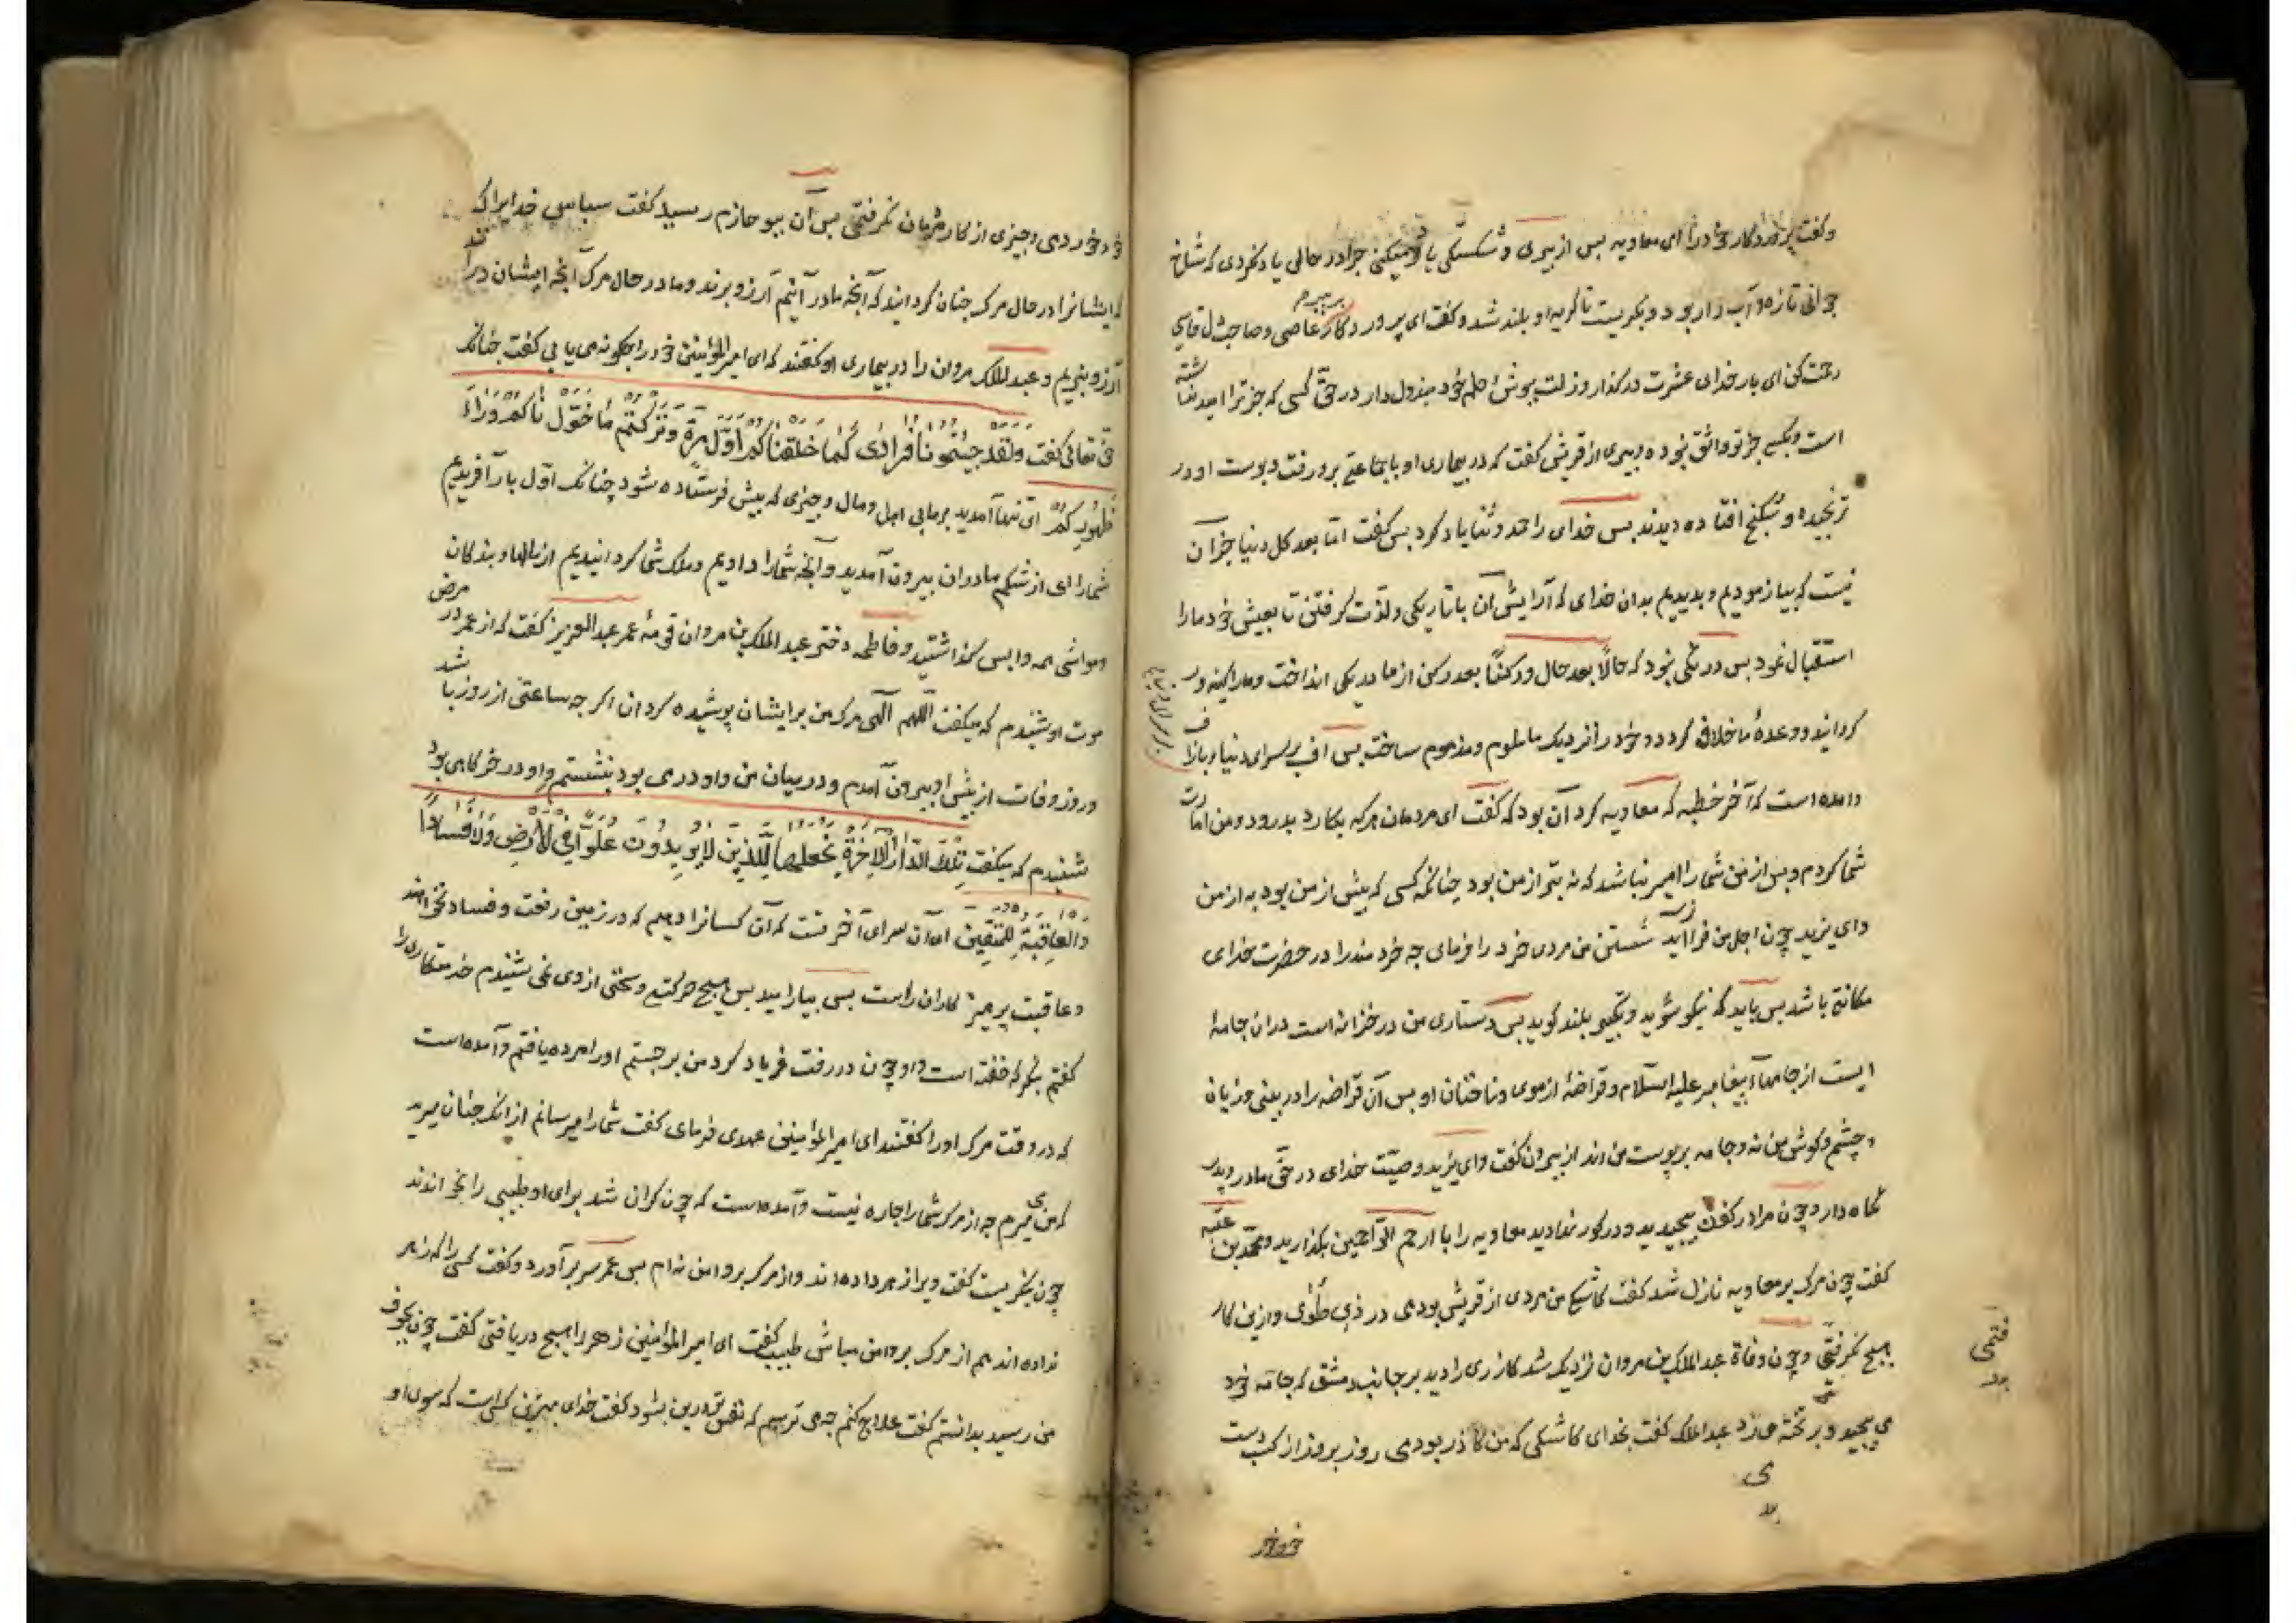 وکفت پروردکار خود را ای معاویه بس از بیری و شکستکی یاد میکنی جرا در حالی یاد نکردی که شاخ
جوانی تازه و آب دار بود و بکریست تا کریه او بلند شد و کفت ای پروردکار بر بیرم عاصی و صاحب دل قاسی
رحمت کن ای بار خدای عشرت درکذار و زلت ببوش و حلم خود مبذول دار در حق کسی که جز ترا امید نداشته
است و بکسی جز تو واثق نبوده و بیری از قریش کفت که در بیماری او با جماعتی برو رفت و بوست او در
ترنجیده و شکنج افتاده دیدند بس خدای را حمد و ثنا یاد کرد بس کفت اما بعد کل دنیا جز آن
نیست که بیازمودیم و بدیدیم بدان خدای که آرایش آن با تاریکی و لذت کرفتن تا بعیش خود ما را
استقبال نمود بس درنکی نبود که حالا بعد حال و رکنا بعد رکن از ما در یکی انداخت و ما را کینه ور
کردانید و وعدهٔ ما خلاف کرد و خود را نزدیک ما ملوم و مذموم ساخت بس اف بر سرای دنیا و باز اف
و آمده است که آخر خطبه که معاویه کرد آن بود که کفت ای مردمان هر که بکارد بدرود و من امارت
شما کردم و بس از من شما را امیر نباشد که نه بتر از من بود چنانکه کسی که بیش از من بود به از من
و ای یزید چون اجل من فراز آید شستن من مردی خرد را فرمای جه خردمند را در حضرت خدای
مکانتی باشد بس باید که نیکو شوید و تکبیر بلند کوید بس دستاری من در خزانه است در آن جامهٔ
ایست از جامهاء بیغامبر علیه السلام و قراضهٔ از موی و ناخنان او بس آن قراضه را در بینی و زبان
و چشم و کوش من نه و جامه بر پوست من اند از بیرون کفت و ای یزید وصیت خدای در حق مادر و پدر
نکاه دار و چون مرا در کفن بیجیدید و در کور نهادید معاویه را با ارحم الراحمین بکذارید و محمد بن عتبه
کفت چون مرک بر معاویه نازل شد کفت کاشکی من مردی از قریش بودمی در ذی طوی و ازین کار
هیج نکرفتمی و چون وفاة عبد الملک بن مروان نزدیک شد کازری را دید بر جانب دمشق که جامه خود
می بیجید و بر تخته می زد عبد الملک کفت بخدای کاشکی که من کاذر بودمی روز بروز از کسب دست
خودخور
خود خوردمی و چیزی از کار مردمان نکرفتمی بس آن ببو حازم رسید کفت سباس خدایرا که
که ایشانرا در حال مرک جنان کردانید که آنجه ما در آنیم آرزو برند و ما در حال مرک آنجه ایشان در آنند
آرزو نبریم و عبد الملک مروان را در بیماری او کفتند که ای امیر المؤمنین خود را جکونه می یابی کفت جنانک
حق تعالی کفت ولقد جئتمونا فرادی کما خلقناکم اول مرة وترکتم ما خولناکم وراء
ظهورکم ای تنها آمدید بر ما بی اهل و مال و چیزی که بیش فرستاده شود چنانک اول بار آفریدیم
شما را ای از شکم مادران بیرون آمدید و آنجه شما را دادیم و ملک شما کردانیدیم از مالها و بندکان
ومواشی همه وا بس کذاشتید و فاطمه دختر عبد الملک بن مروان قومهٔ عمر عبد العزیز کفت که از عمر در مرض
موت او شنیدم که میکفت اللهم الهی مرک من بر ایشان پوشیده کردان اکر جه ساعتی از روز باشد
و روز وفات از بیش او بیرون آمدم و در میان من و او دری بود بنشستم و او در خرکاهی بود
شنیدم که میکفت تلک الدار الآخرة نجعلها للذین لا یریدون علوا فی الارض ولا فسادا
والعاقبة للمتقین ای آن سرای آخرتست که آن کسانرا دهیم که در زمین رفعت و فساد نخواهند
و عاقبت پرهیز کاران راست بس بیارامید بس هیج حرکتی و سخنی از وی نمی شنیدم خدمتکاری را
کفتم بنکر که خفته است و او چون در رفت فریاد کرد من برجستم او را مرده یافتم و آمده است
که در وقت مرک او را کفتند ای امیر المؤمنین عهدی فرمای کفت شما را میرسانم از آنک جنان میرید
که من می میرم جه از مرک شما را جاره نیست و آمده است که چون کران شد برای او طبیبی را بخواندند
چون بنکریست کفت ویرا زهر داده اند و از مرک برو امن نه ام بس عمر سر بر آورد و کفت کسی را که زهر
نداده اند هم از مرک برو امن مباش طبیب کفت ای امیر المؤمنین زهر را هیج دریافتی کفت چون بجوف
من رسید بدانستم کفت علاج کنم جه می ترسم که نفس تو درین بشود کفت خدای بهترین کسی است که سوی او